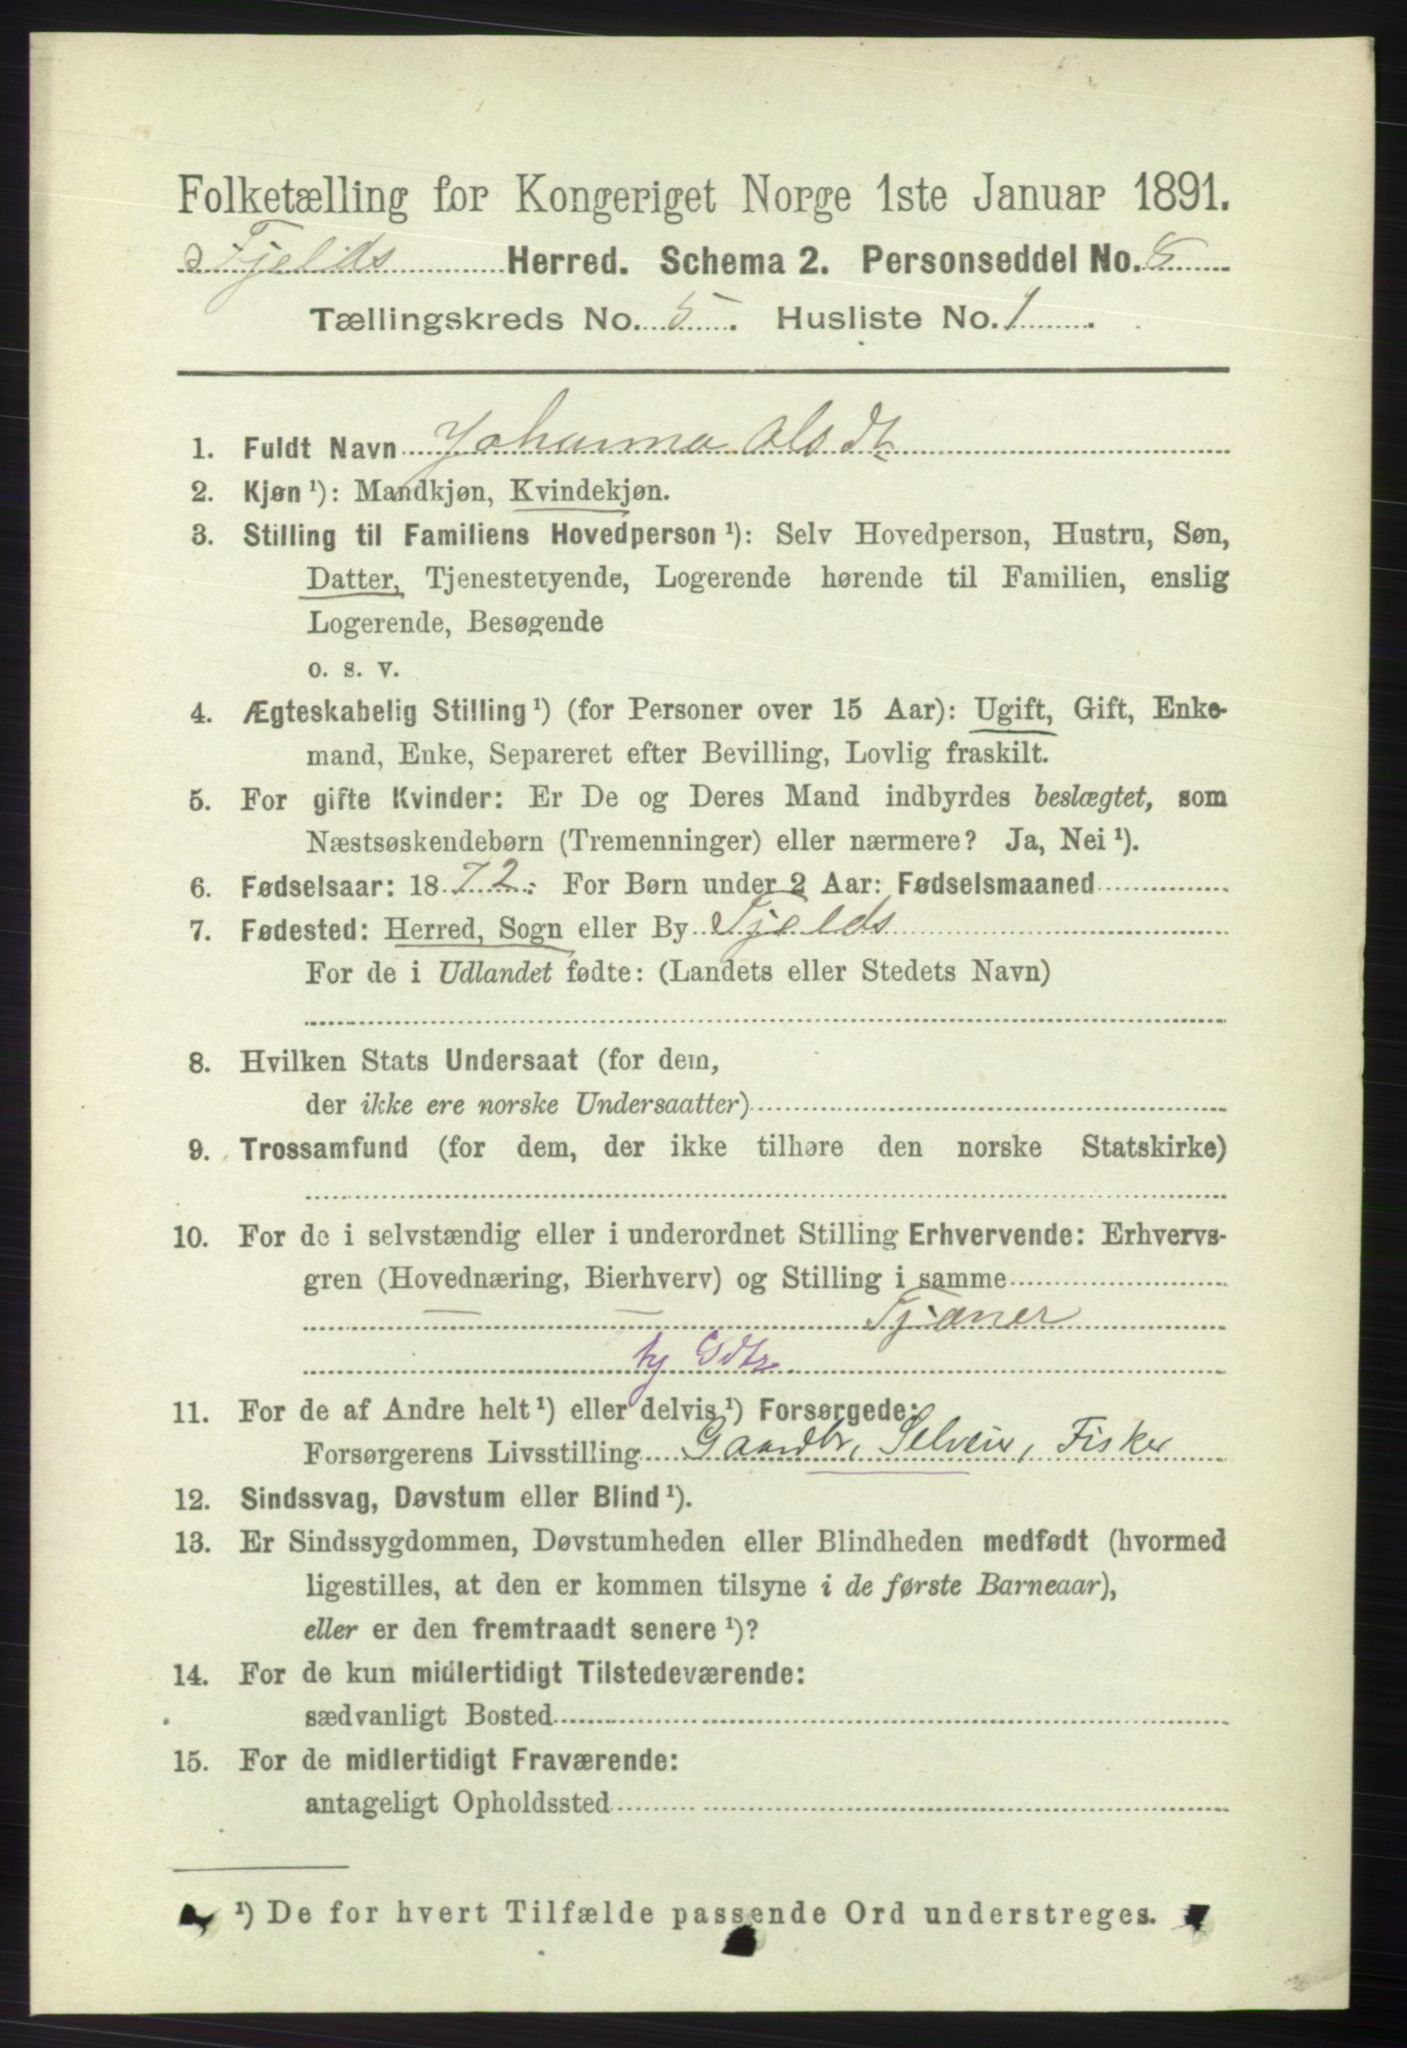 Folketælling for Kongeriget Norge 1ste Januar 1891.
Fjelds Herred. Schema 2. Personseddel No. 5
Tællingskreds No. 5. Husliste No. 1.
1. Fuldt Navn Johanna Olsdtr
2. Kjøn ¹): Mandkjøn, Kvindekjøn.
3. Stilling til Familiens Hovedperson ¹): Selv Hovedperson, Hustru, Søn,
Datter, Tjenestetyende, Logerende hørende til Familien, enslig
Logerende, Besøgende
o. s. v.
4. Ægteskabelig Stilling ¹) (for Personer over 15 Aar): Ugift, Gift, Enke-
mand, Enke, Separeret efter Bevilling, Lovlig fraskilt.
5. For gifte Kvinder: Er De og Deres Mand indbyrdes beslægtet, som
Næstsøskendebørn (Tremenninger) eller nærmere? Ja, Nei ¹).
6. Fødselsaar: 1872. For Børn under 2 Aar: Fødselsmaaned
7. Fødested: Herred, Sogn eller By Fjelds
For de i Udlandet fødte: (Landets eller Stedets Navn)
8. Hvilken Stats Undersaat (for dem,
der ikke ere norske Undersaatter)
9. Trossamfund (for dem, der ikke tilhøre den norske Statskirke)
10. For de i selvstændig eller i underordnet Stilling Erhvervende: Erhvervs-
gren (Hovednæring, Bierhverv) og Stilling i samme
— — Tjæner
ty Gdtr
11. For de af Andre helt ¹) eller delvis ¹) Forsørgede:
Forsørgerens Livsstilling Gaardbr, Selveier, Fisker
12. Sindssvag, Døvstum eller Blind ¹).
13. Er Sindssygdommen, Døvstumheden eller Blindheden medfødt (hvormed
ligestilles, at den er kommen tilsyne i de første Barneaar),
eller er den fremtraadt senere ¹)?
14. For de kun midlertidigt Tilstedeværende:
sædvanligt Bosted
15. For de midlertidigt Fraværende:
antageligt Opholdssted
¹) De for hvert Tilfælde passende Ord understreges.